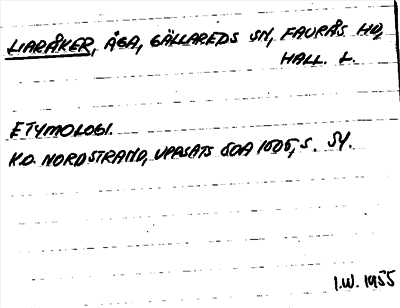 LIARÅKER, ÅGA, GÄLLAREDS SN, FAURÅS HD,
HALL. L.
ETYMOLOGI.
K.O. NORDSTRAND, UPPSATS SOA 1505, S. 54.
I.W. 1955